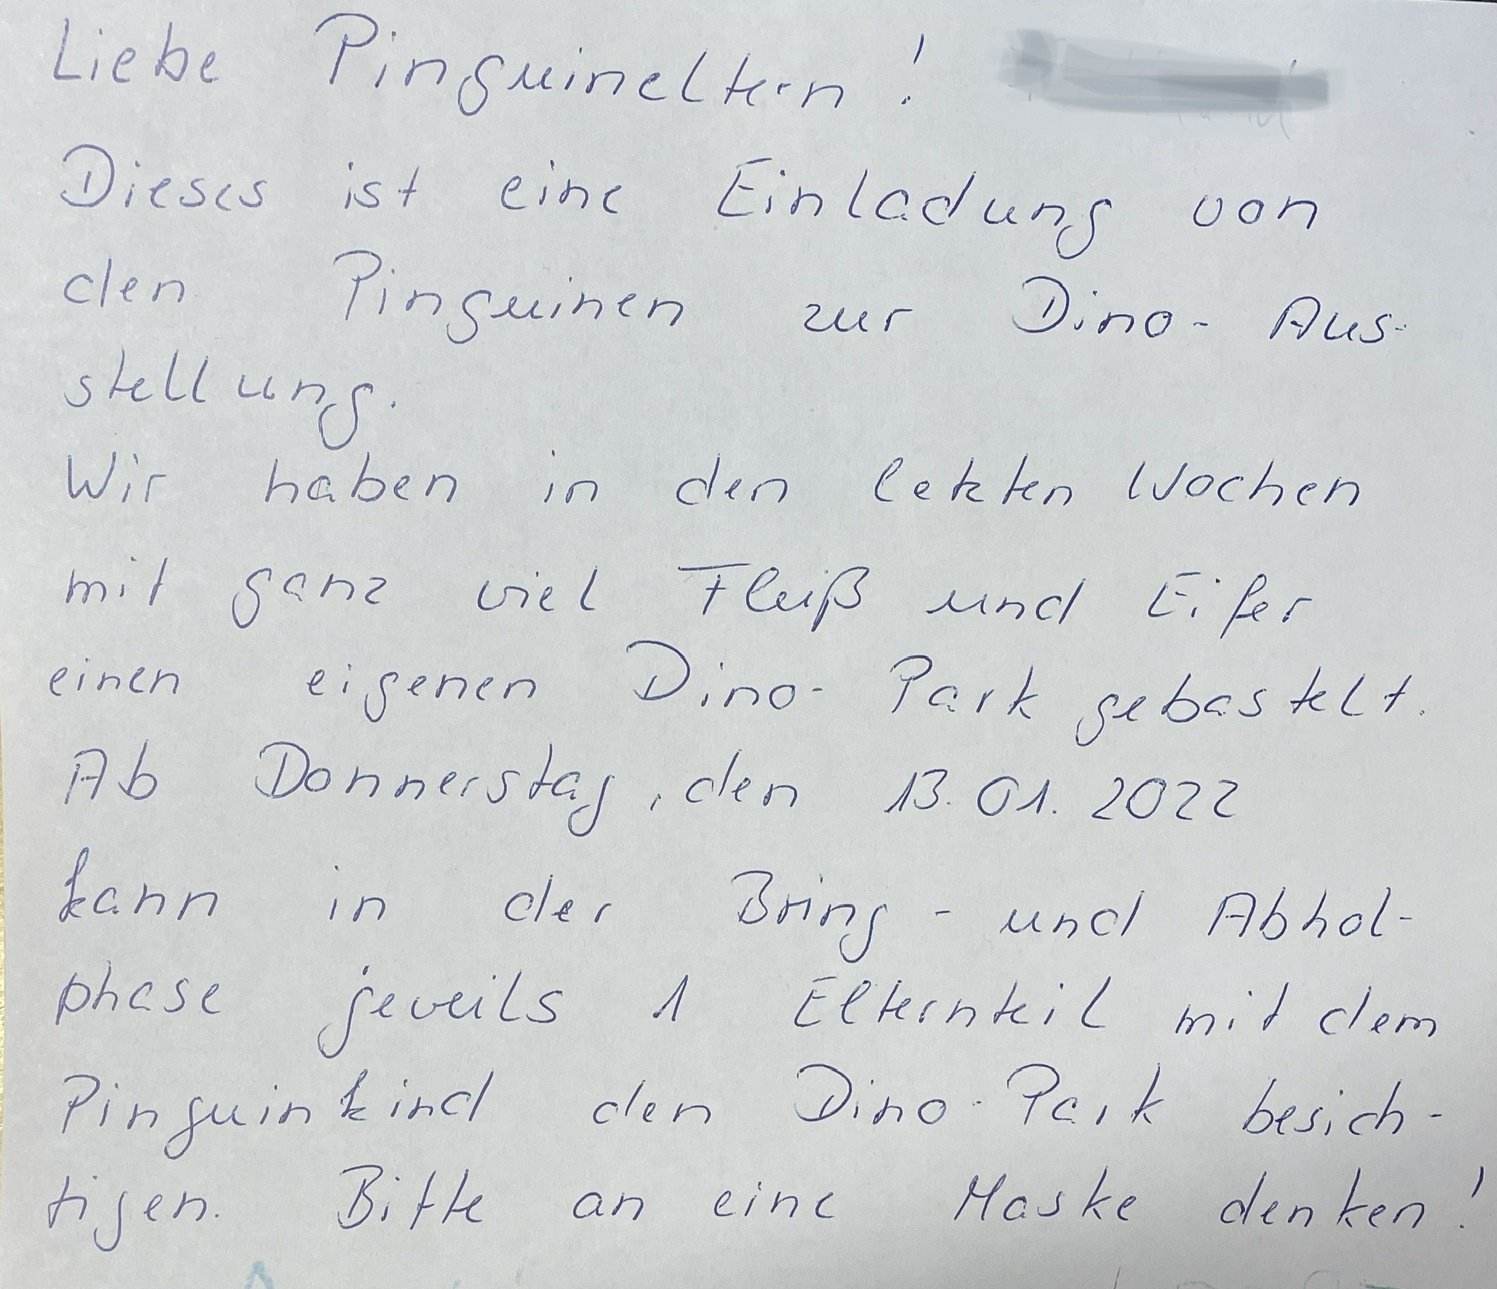 Liebe Pinguineltern!
Dieses ist eine Einladung von
den Pinguinen zur Dino- Aus-
stellung.
Wir haben in den letzten Wochen
mit ganz viel Fleiß und Eifer
einen eigenen Dino- Park gebastelt.
Ab Donnerstag, den 13.01.2022
kann in der Bring- und Abhol-
phase jeweils 1 Elternteil mit dem
Pinguinkind den Dino-Park besich-
tigen. Bitte an eine Maske denken!